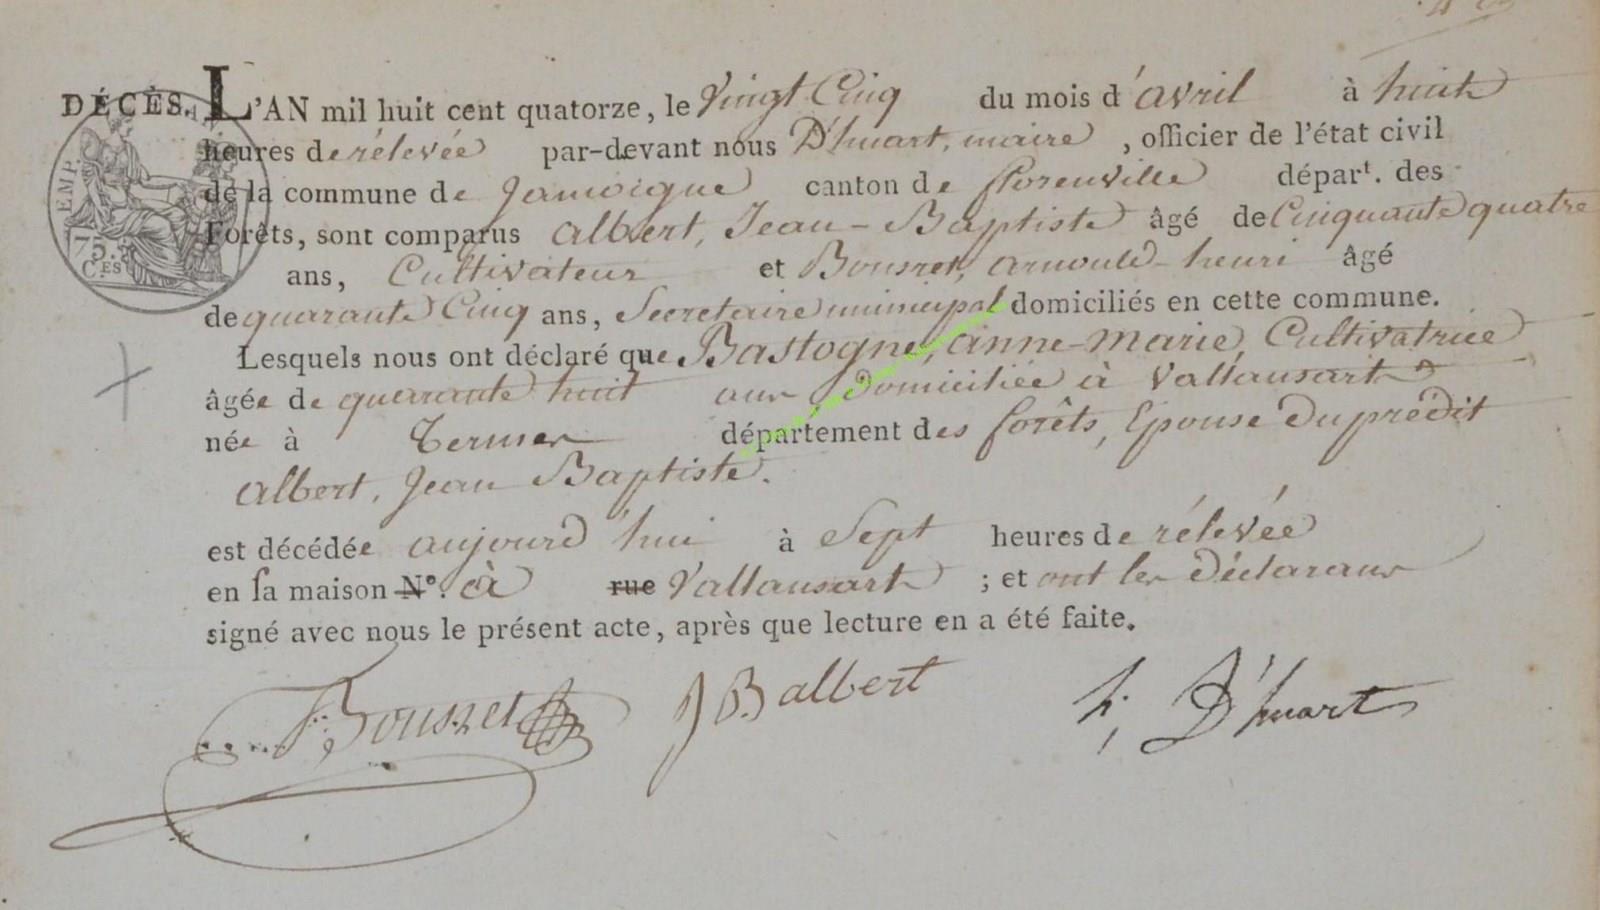 DÉCÈS. L'AN mil huit cent quatorze, le Vingt Cinq du mois d'avril à huit
heures de rélevée par-devant nous D'huart, maire, officier de l'état civil
de la commune de Jamoigne canton de florenville départ. des
Forêts, sont comparus albert, Jean-Baptiste âgé de Cinquante quatre
ans, Cultivateur et Bousret, arnould-henri âgé
de quarante Cinq ans, Secretaire municipal domiciliés en cette commune.
Lesquels nous ont déclaré que Bastogne, anne-marie, Cultivatrice
âgée de quarante huit ans domiciliée à Vallansart
née à Termes département des forêts, Epouse du prédit
albert, Jean Baptiste.
est décédée aujourd'hui à Sept heures de rélevée
en sa maison N°. à rue Vallansart ; et ont les déclarans
signé avec nous le présent acte, après que lecture en a été faite.
Bousret JB albert h, D'huart
EMP.
75.
CES